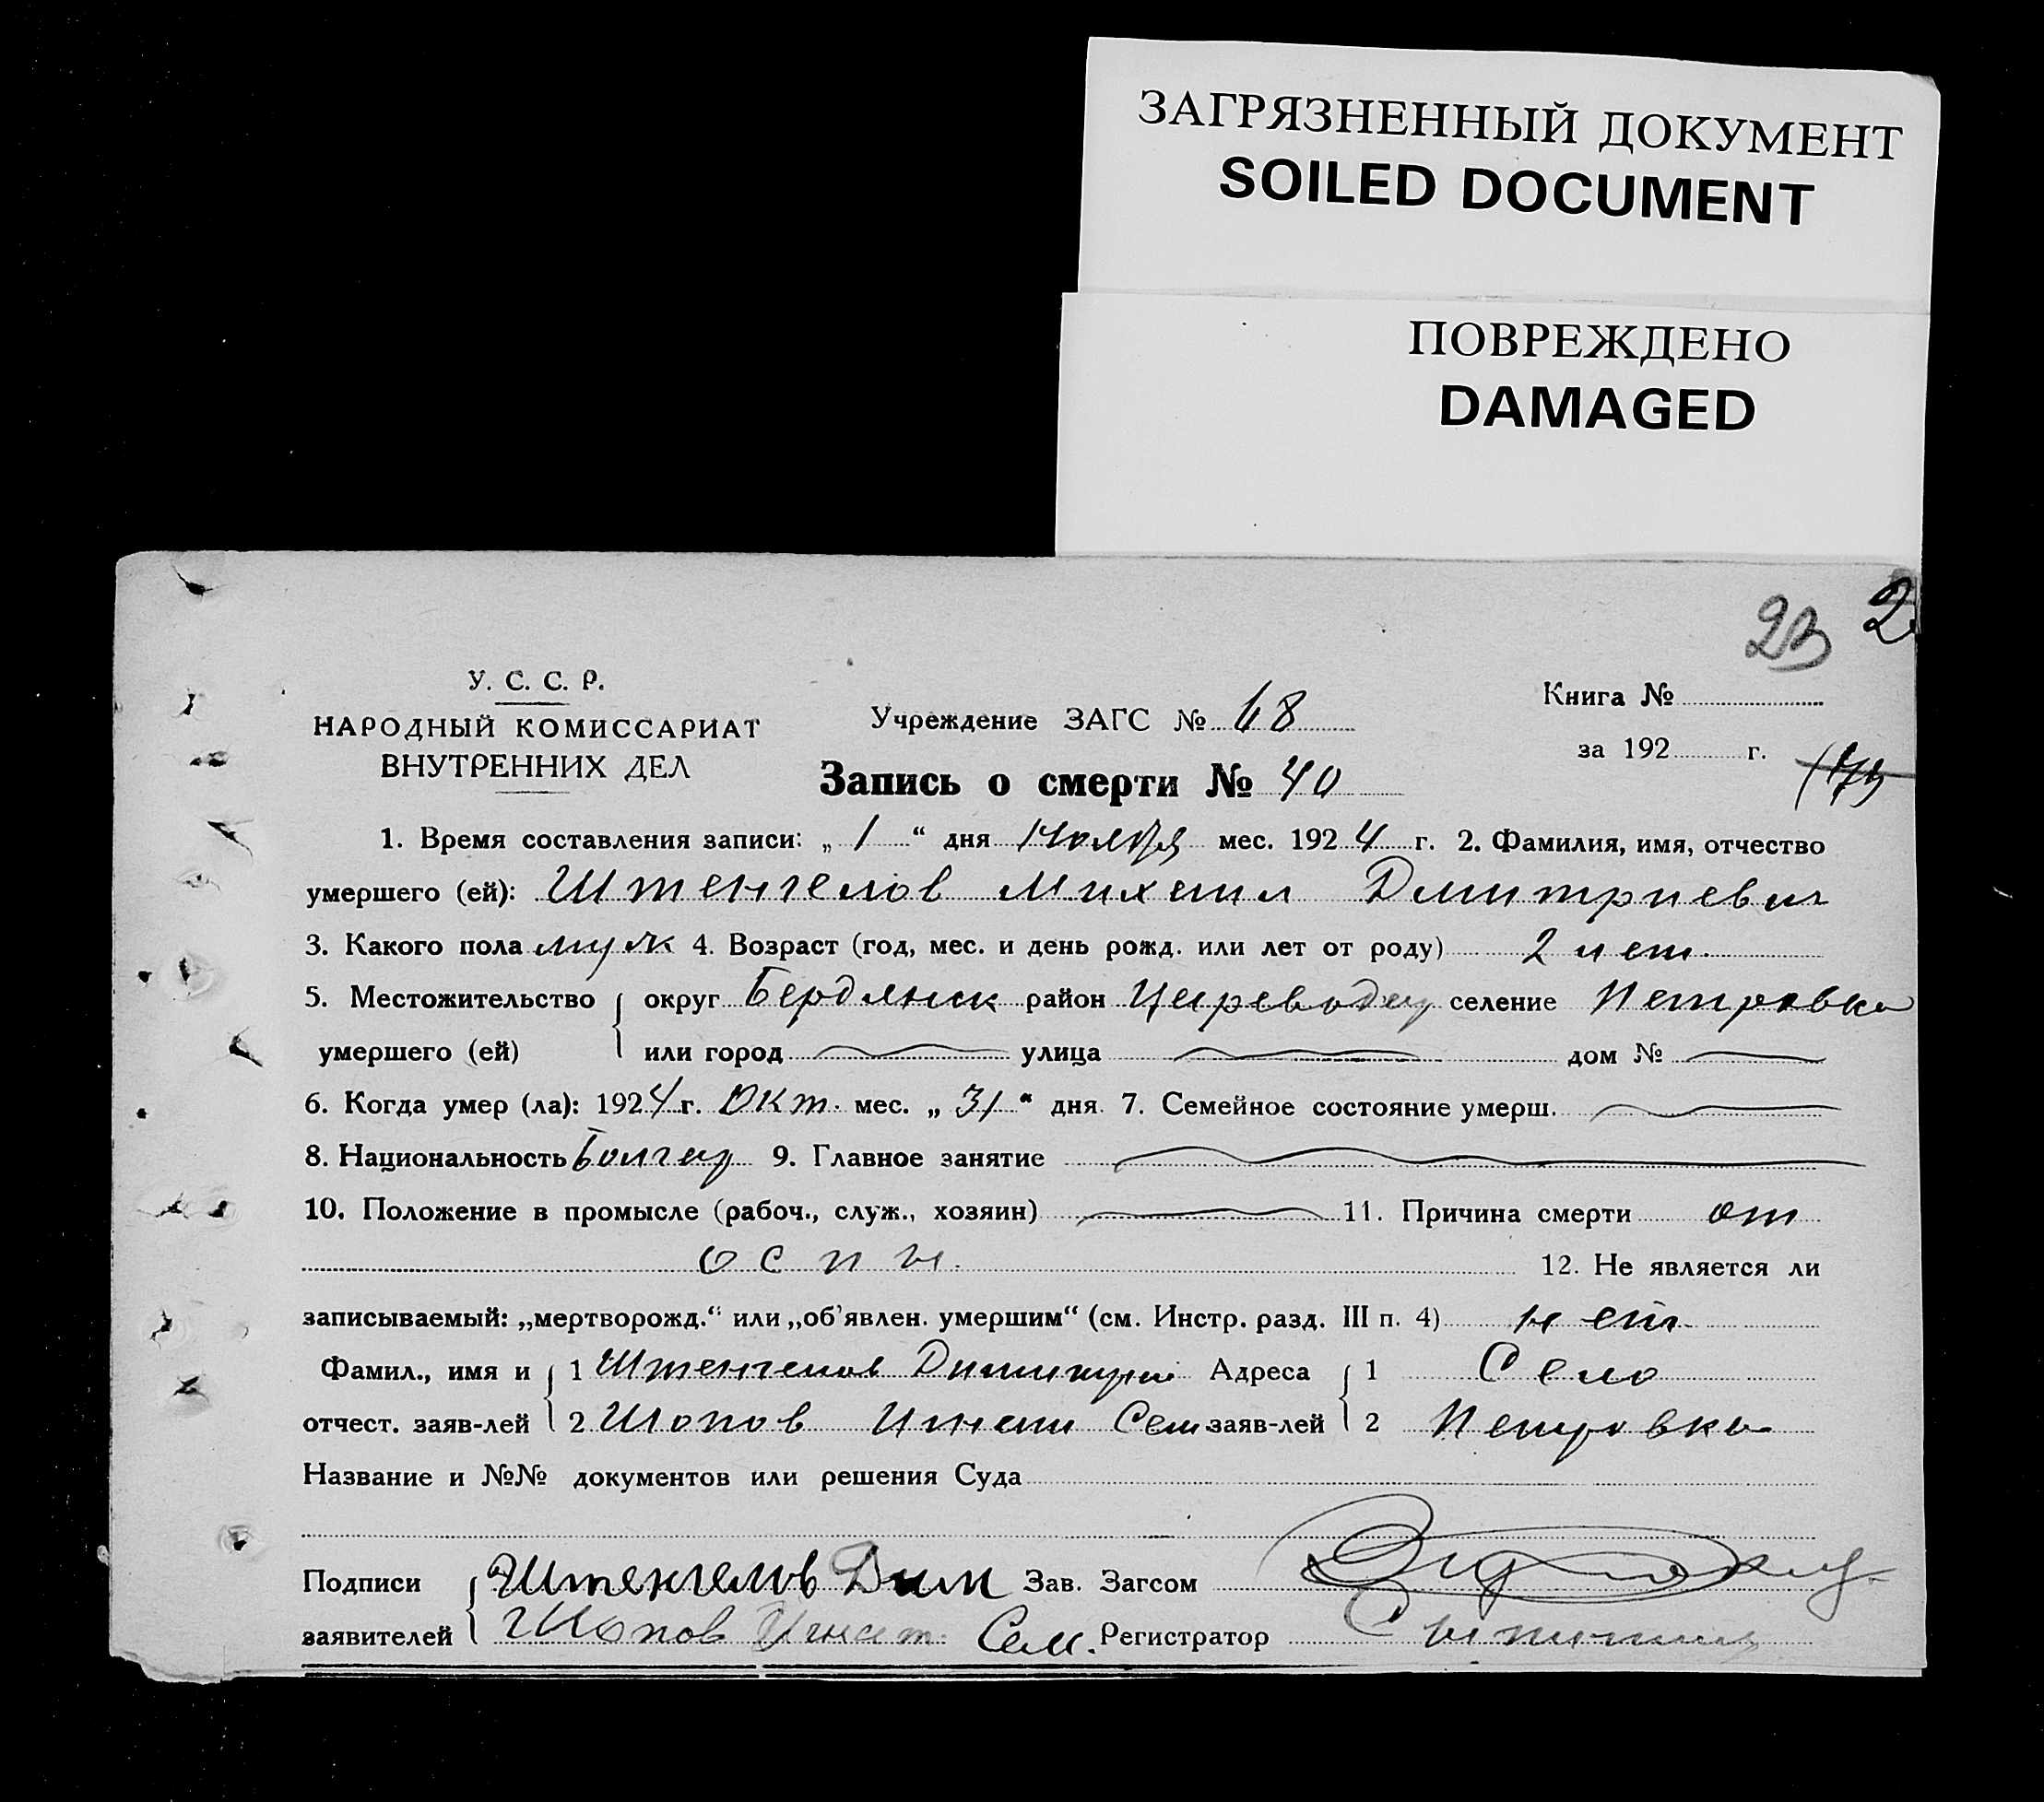 ЗАГРЯЗНЕННЫЙ ДОКУМЕНТ
SOILED DOCUMENT
ПОВРЕЖДЕНО
DAMAGED
23 2
У. С. С. Р.
НАРОДНЫЙ КОМИССАРИАТ
ВНУТРЕННИХ ДЕЛ
Учреждение ЗАГС № 68
Запись о смерти № 40
Книга №
за 192 г.
1. Время составления записи: „ 1 “ дня Ноября мес. 192 4 г. 2. Фамилия, имя, отчество
умершего (ей): Штенгелов Михаил Дмитриевич
3. Какого пола муж 4. Возраст (год, мес. и день рожд. или лет от роду) 2 лет.
5. Местожительство округ Бердянск район Цареводар селение Петровка
умершего (ей) или город улица дом №
6. Когда умер (ла): 1924 г. Окт. мес. „ 31 “ дня. 7. Семейное состояние умерш.
8. Национальность Болгар 9. Главное занятие
10. Положение в промысле (рабоч., служ., хозяин) 11. Причина смерти от
оспы. 12. Не является ли
записываемый: „мертворожд.“ или „об'явлен. умершим“ (см. Инстр. разд. III п. 4) нет.
Фамил., имя и 1 Штенгелов Димитрий Адреса 1 Село
отчест. заяв-лей 2 Шопов Игнат Сем заяв-лей 2 Петровка
Название и №№ документов или решения Суда
Подписи Штенгелов Дим Зав. Загсом
заявителей Шопов Игнат. Сем. Регистратор